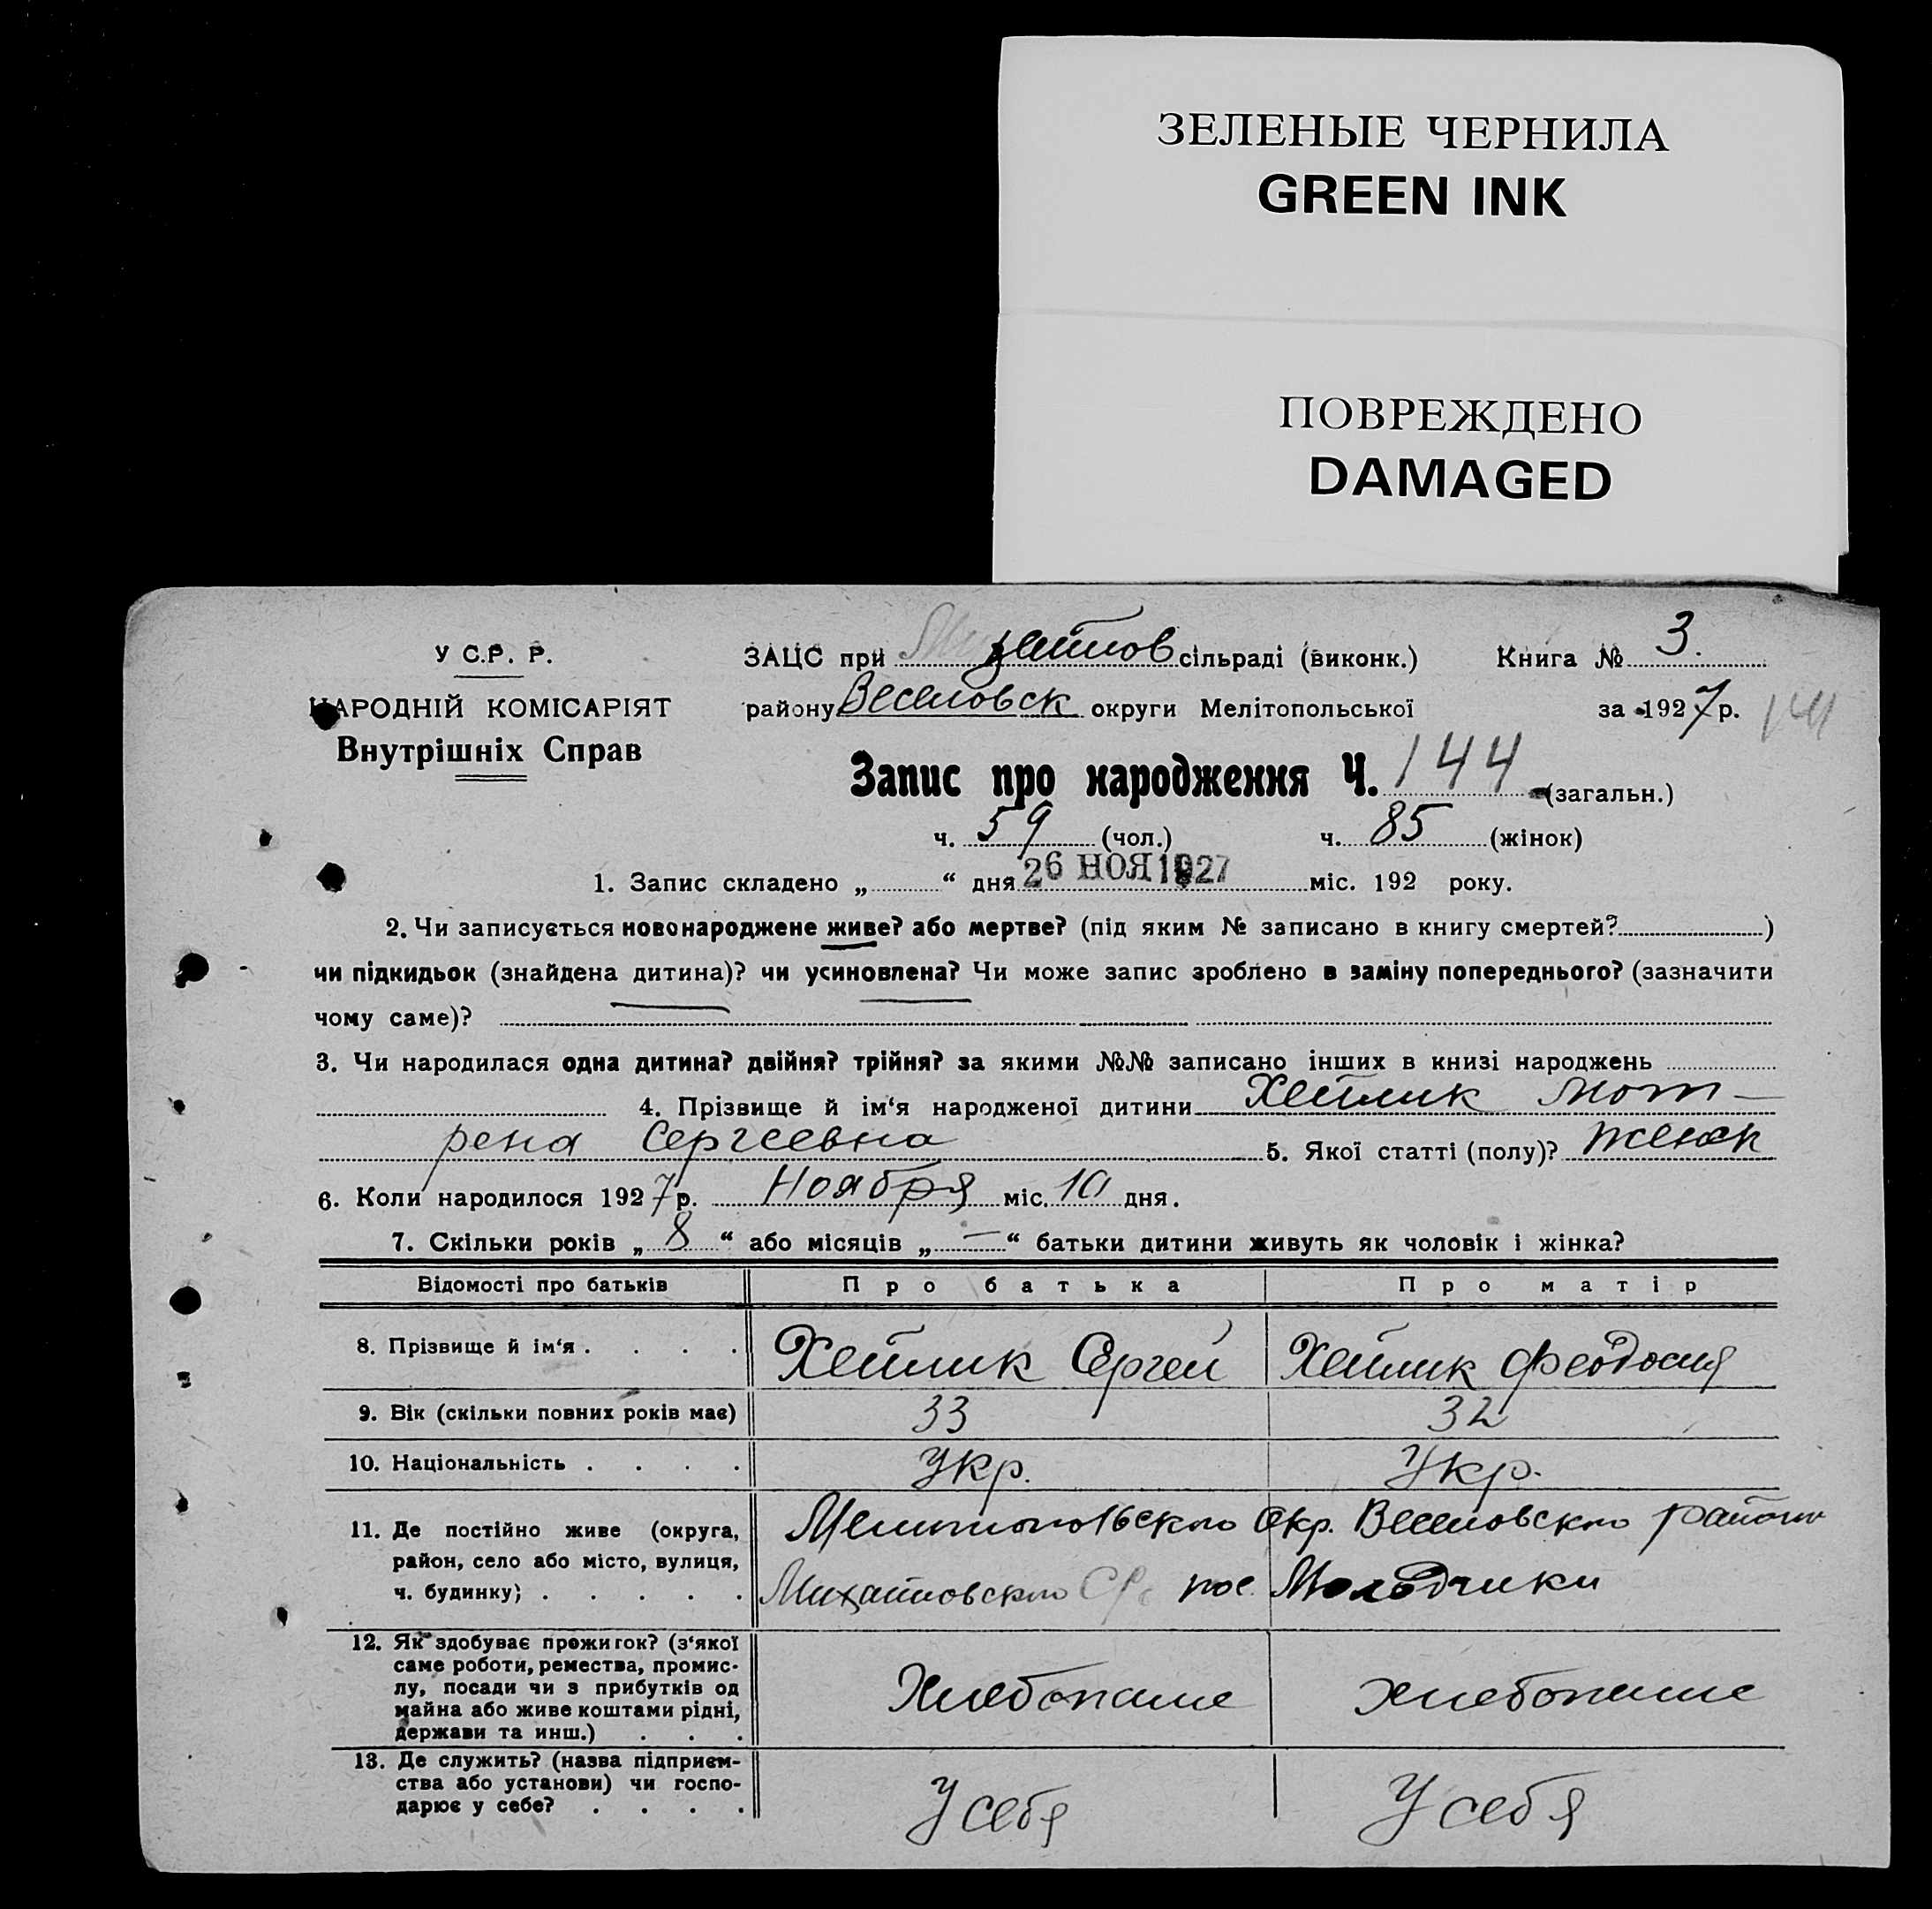 ЗЕЛЕНЫЕ ЧЕРНИЛА
GREEN INK
ПОВРЕЖДЕНО
DAMAGED
У С.Р. Р.
НАРОДНІЙ КОМІСАРІЯТ
Внутрішніх Справ
ЗАЦС при сільраді (виконк.) Книга № 3.
району Веселовск округи Мелітопольської за 1927 р.
Запис про народження Ч. 144 (загальн.)
ч. 59 (чол.) ч. 85 (жінок)
1. Запис складено „ “ дня 26 НОЯ 1927 міс. 192 року.
2. Чи записується новонароджене живе? або мертве? (під яким № записано в книгу смертей? )
чи підкидьок (знайдена дитина)? чи усиновлена? Чи може запис зроблено в заміну попереднього? (зазначити
чому саме)?
3. Чи народилася одна дитина? двійня? трійня? за якими №№ записано інших в книзі народжень
4. Прізвище й ім‘я народженої дитини Хейлик Мот-
рена Сергеевна 5. Якої статті (полу)? женск
6. Коли народилося 1927 р. Ноября міс. 10 дня.
7. Скільки років „ 8 “ або місяців „ — “ батьки дитини живуть як чоловік і жінка?
Відомості про батьків Про батька Про матір
8. Прізвище й ім‘я . . . . Хейлик Сергей Хейлик Феодосия
9. Вік (скільки повних років має) 33 32
10. Національність . . . . Укр. Укр.
11. Де постійно живе (округа, Мелитопольского Окр. Веселовского района
район, село або місто, вулиця,
ч. будинку) . . . . . Михайловского пос. Молодчики
12. Як здобуває прожиток? (з‘якої
саме роботи, ремества, промис-
лу, посади чи з прибутків од
майна або живе коштами рідні,
держави та инш.) . . . Хлебопаше хлебопаше
13. Де служить? (назва підприєм-
ства або установи) чи госпо-
дарює у себе? . . . . У себя У себя